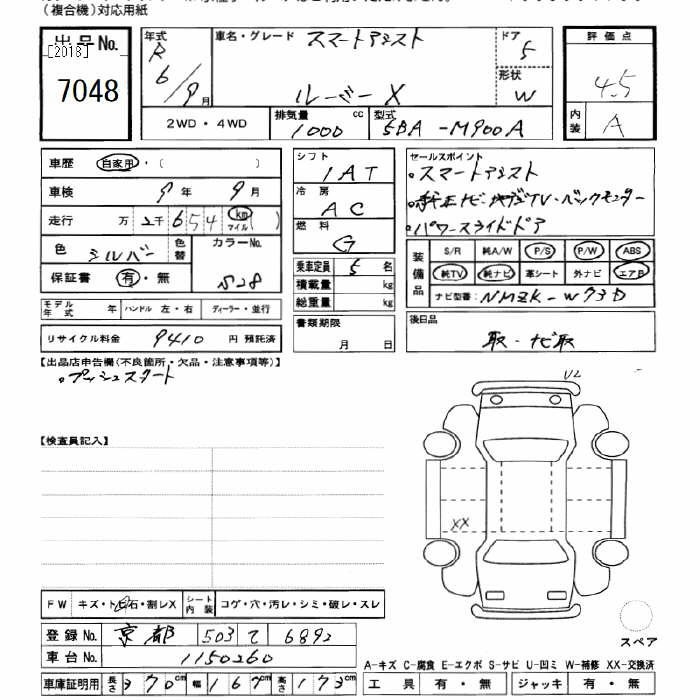 （複合機）対応用紙
出品No.
[2018]
7048
年式
R
6/9月
車名・グレード スマートアシスト
ルーミーX
ドア
5
形状
W
2WD・4WD
排気量 cc
1000
型式
5BA-M900A
評価点
4.5
内装 A
車歴 自家用・( )
車検 9年 9月
走行 万 2千 654 km マイル ( )
色 シルバー 色替
カラーNo.
S28
保証書 有・無
モデル年式 年 ハンドル 左・右 ディーラー・並行
リサイクル料金 9410 円 預託済
シフト
IAT
冷房
AC
燃料
G
乗車定員 5名
積載量 kg
総重量 kg
書類期限
月 日
セールスポイント
・スマートアシスト
・純正ナビ・地デジTV・バックモニター
・パワースライドドア
装備品
S/R 純A/W P/S P/W ABS
純TV 純ナビ 革シート 外ナビ エアB
ナビ型番: NMZK-W73D
後日品
取・ナビ取
【出品店申告欄(不良箇所・欠品・注意事項等)】
・プッシュスタート
U2
【検査員記入】
XX
FW キズ・トビ石・割レX
シート内装 コゲ・穴・汚レ・シミ・破レ・スレ
登録No. 京都 503 て 6892
車台No. 1150260
車庫証明用 長さ 370cm 幅 167cm 高さ 173cm
スペア
A-キズ C-腐食 E-エクボ S-サビ U-凹ミ W-補修 XX-交換済
工具 有・無 ジャッキ 有・無